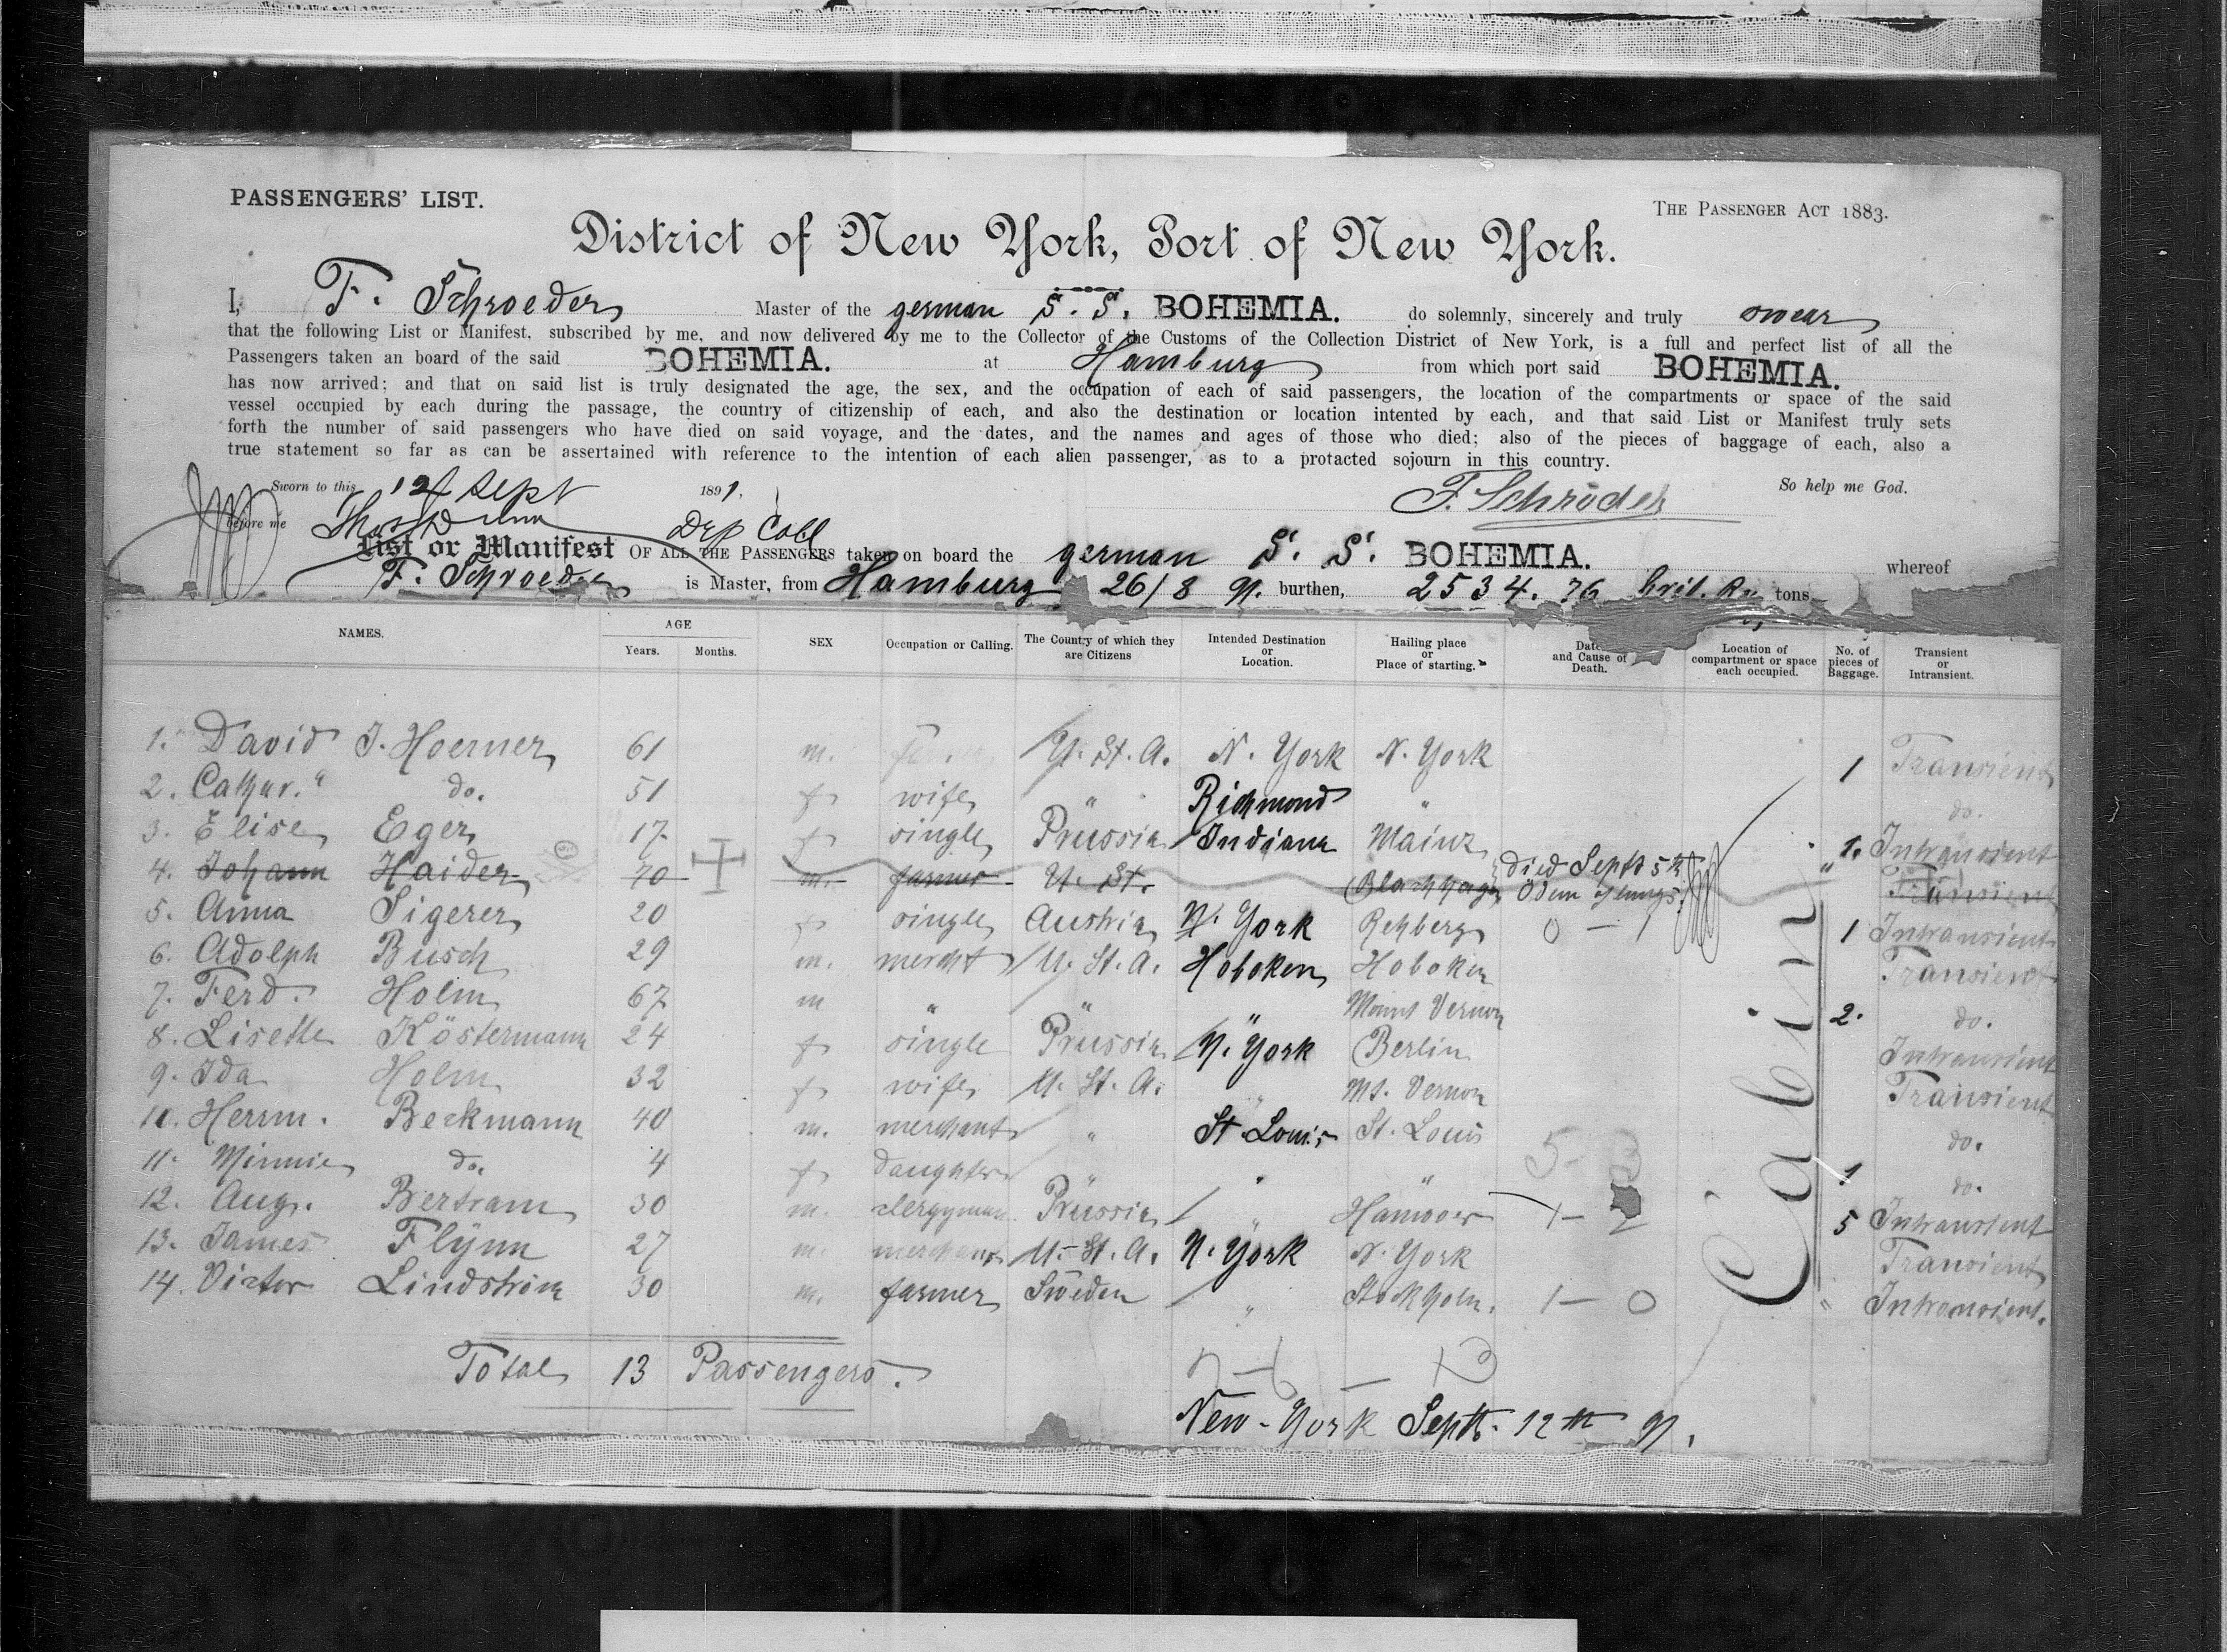 PASSENGERS' LIST.
THE PASSENGER ACT 1883.
District of New York, Port of New York.
I, F. Schroeder Master of the german S. S. BOHEMIA. do solemnly, sincerely and truly swear
that the following List or Manifest, subscribed by me, and now delivered by me to the Collector of the Customs of the Collection District of New York, is a full and perfect list of all the
Passengers taken an board of the said BOHEMIA. at Hamburg from which port said BOHEMIA.
has now arrived; and that on said list is truly designated the age, the sex, and the occupation of each of said passengers, the location of the compartments or space of the said
vessel occupied by each during the passage, the country of citizenship of each, and also the destination or location intented by each, and that said List or Manifest truly sets
forth the number of said passengers who have died on said voyage, and the dates, and the names and ages of those who died; also of the pieces of baggage of each, also a
true statement so far as can be assertained with reference to the intention of each alien passenger, as to a protacted sojourn in this country.
Sworn to this 12 Sept 1891. F. Schröder So help me God.
before me Dep Coll
List or Manifest OF ALL THE PASSENGERS taken on board the german S. S. BOHEMIA. whereof
F. Schroeder is Master, from Hamburg 26/8 91. burthen, 2534.76 brit. tons
NAMES. AGE Years. Months. SEX Occupation or Calling. The Country of which they are Citizens Intended Destination or Location. Hailing place or Place of starting. Date and Cause of Death. Location of compartment or space each occupied. No. of pieces of Baggage. Transient or Intransient.
1. David J. Hoerner 61 m. U. St. A. N. York N. York 1 Transient
2. Cathar. do. 51 f wife " Richmond " do.
3. Elise Eger 17 f single Prussia Indiana Mainz 1. Intransient
4. Johann Haider 70 m. farmer U. St. died Sept 5th " Transient
5. Anna Sigerer 20 f single Austria N. York Rehberg 0 - 1 1 Intransient
6. Adolph Busch 29 m. mercht U. St. A. Hoboken Hoboken Transient
7. Ferd. Holm 67 m " " " Mount Vernon 2. do.
8. Lisette Köstermann 24 f single Prussia N. York Berlin Intransient
9. Ida Holm 32 f wife U. St. A. " Mt. Vernon Transient
10. Herrm. Beckmann 40 m. merchant " St. Louis St. Louis do.
11. Minnie do. 4 f daughter " " " 1 do.
12. Aug. Bertram 30 m. clergyman Prussia " Hannover 5 Intransient
13. James Flynn 27 m. merchant U. St. A. N. York N. York Transient
14. Victor Lindström 30 m. farmer Sweden " Stockholm. 1 - 0 " Intransient.
Cabin
Total 13 Passengers.
New-York Septb. 12th 91.